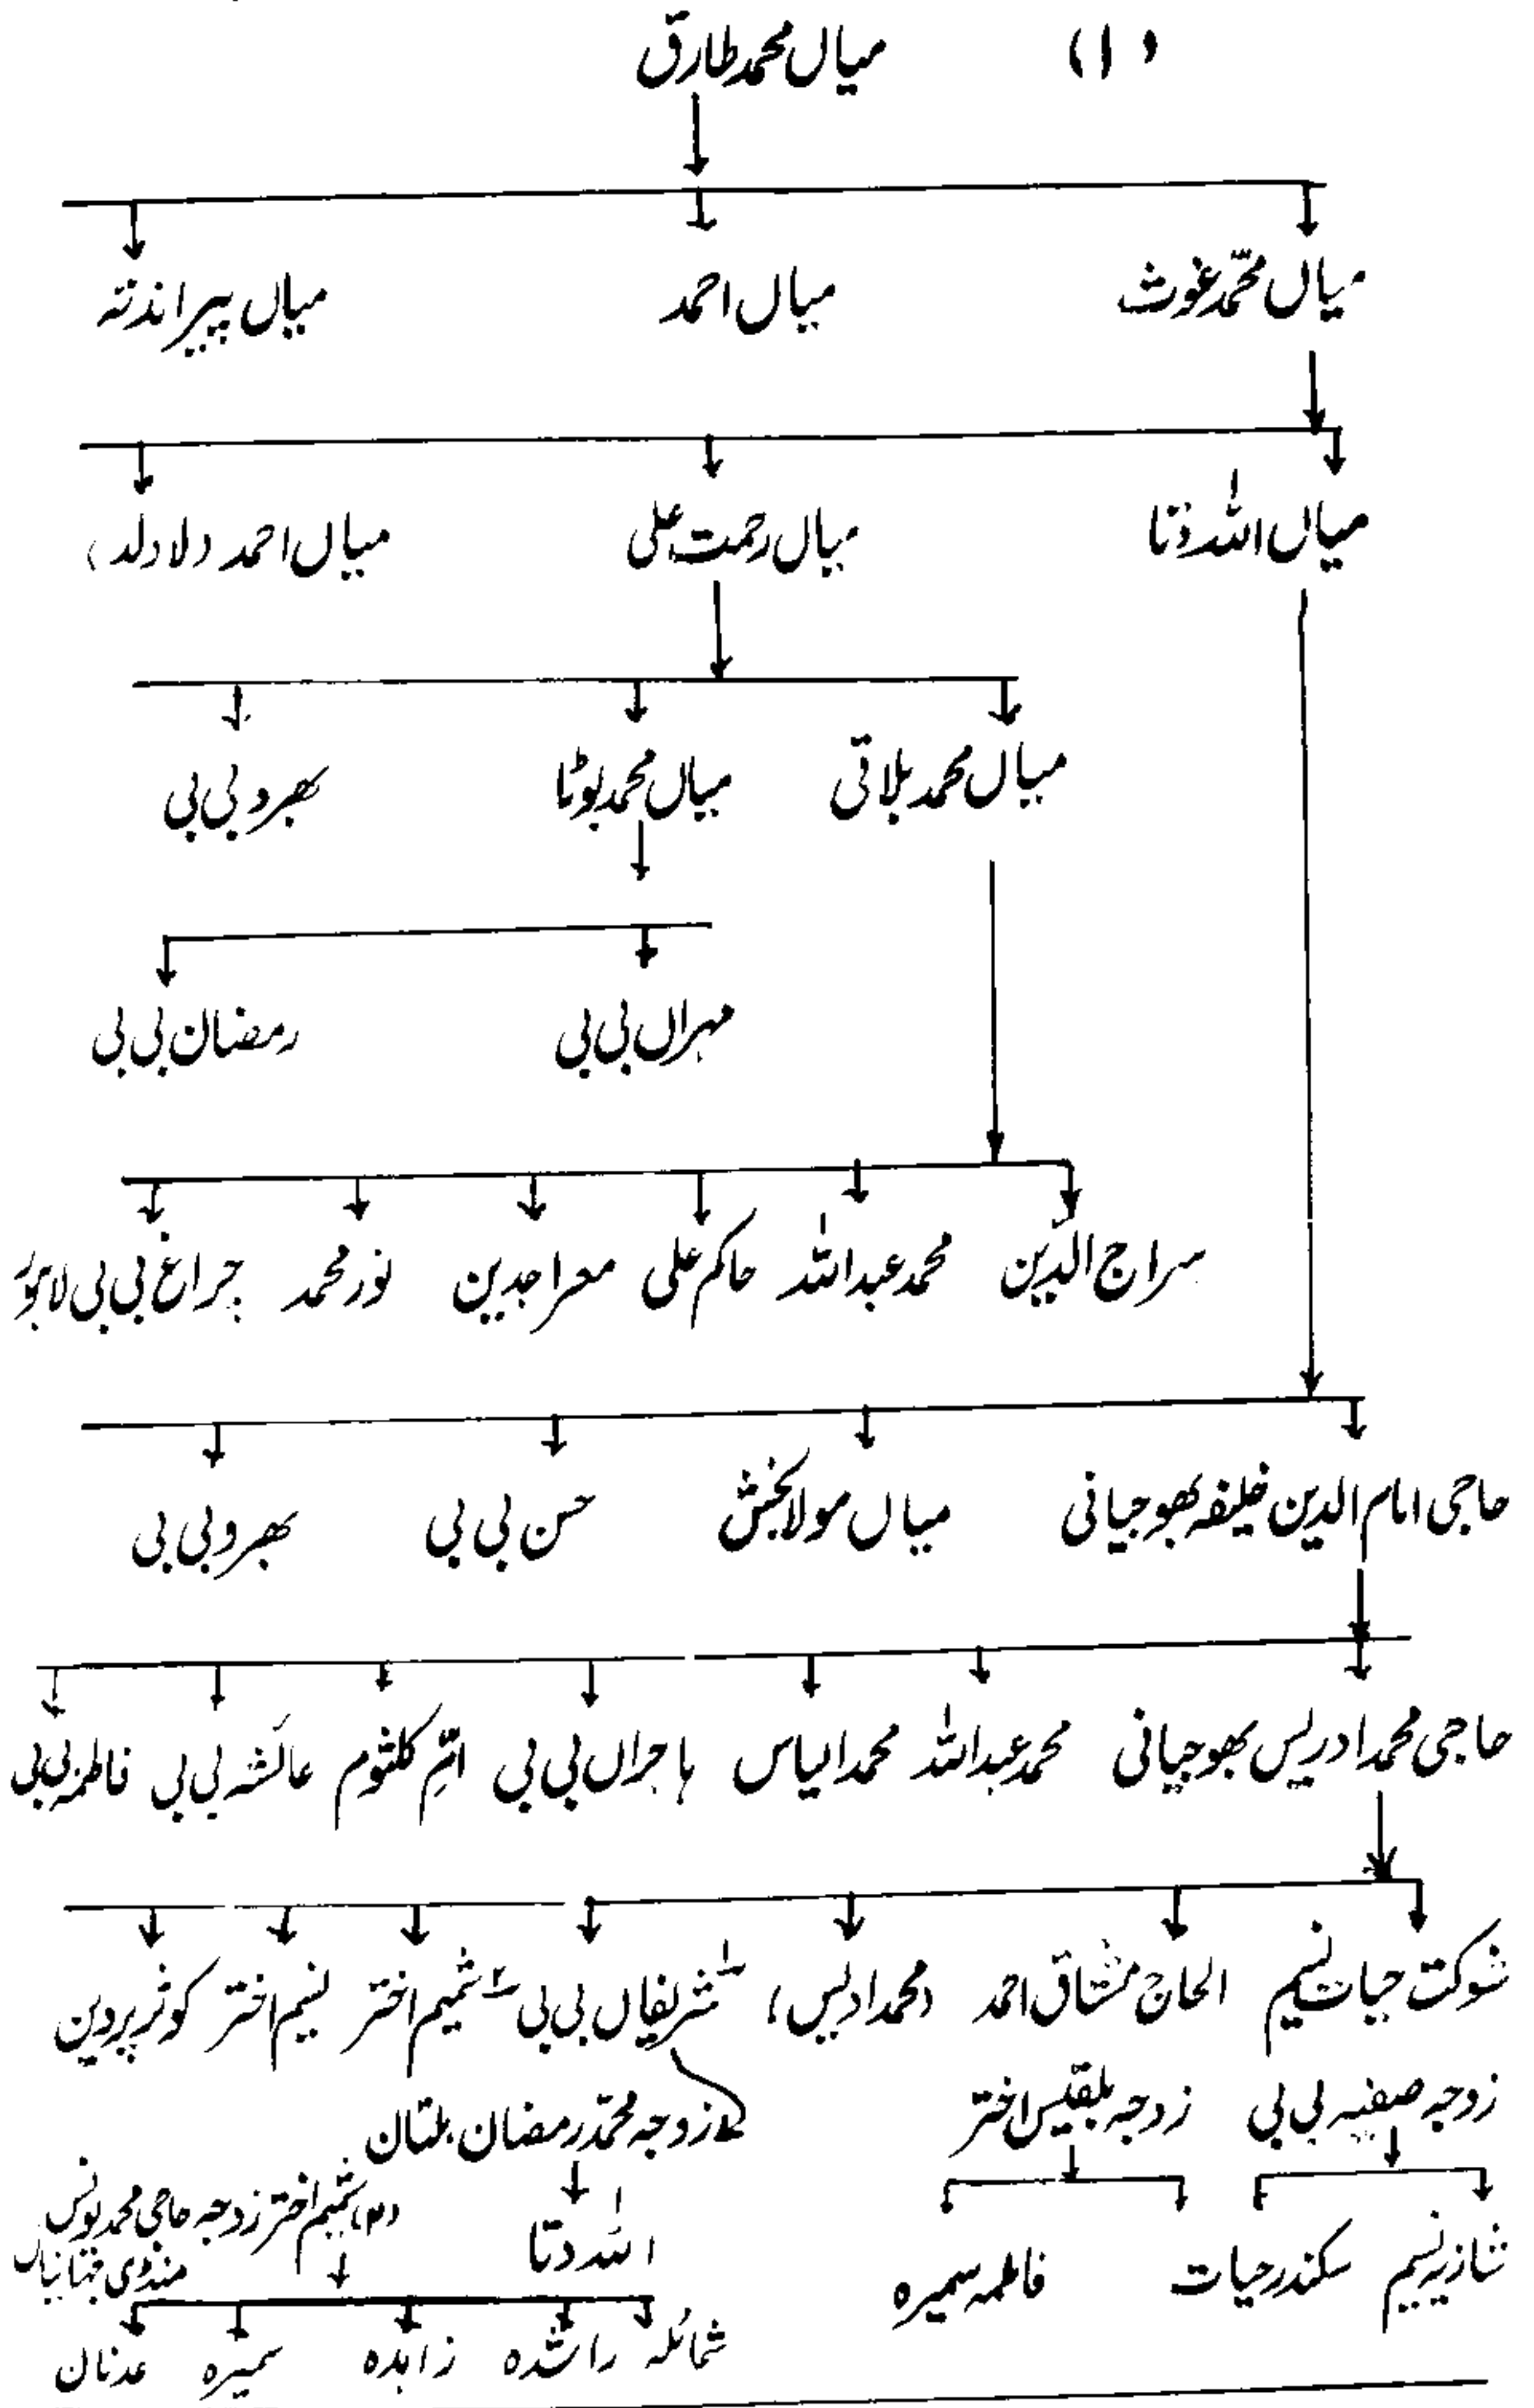 (۱) میاں محمد طارق
میاں محمّد غوث میاں احمد میاں پیراندتہ
میاں اللہ دتا میاں رحمت علی میاں احمد (لاولد)
میاں محمد بلاقی میاں محمد بوٹا بھرو بی بی
مہراں بی بی رمضان بی بی
سراج الدّین محمد عبداللہ حاکم علی معراجدین نور محمد چراغ بی بی لاہور
حاجی امام الدین خلیفہ بھوجیانی میاں مولا بخش حسن بی بی بھرو بی بی
حاجی محمد ادریس بھوجیانی محمد عبداللہ محمد الیاس ہاجراں بی بی امّ کلثوم عائشہ بی بی فاطمہ بی بی
شوکت حیات نسیم الحاج مشتاق احمد (محمد ادیس) ۱ شریفاں بی بی ۲ شمیم اختر نسیم اختر کوثر پروین
زوجہ صفیہ بی بی زوجہ بلقیس اختر زوجہ محمّد رمضان ملتان
(۲) شمیم اختر زوجہ حاجی محمد یونس
شازیہ نسیم سکندر حیات فاطمہ سمیرہ اللہ دتا
منڈی
شمائلہ راشدہ زاہدہ سمیرہ عدنان